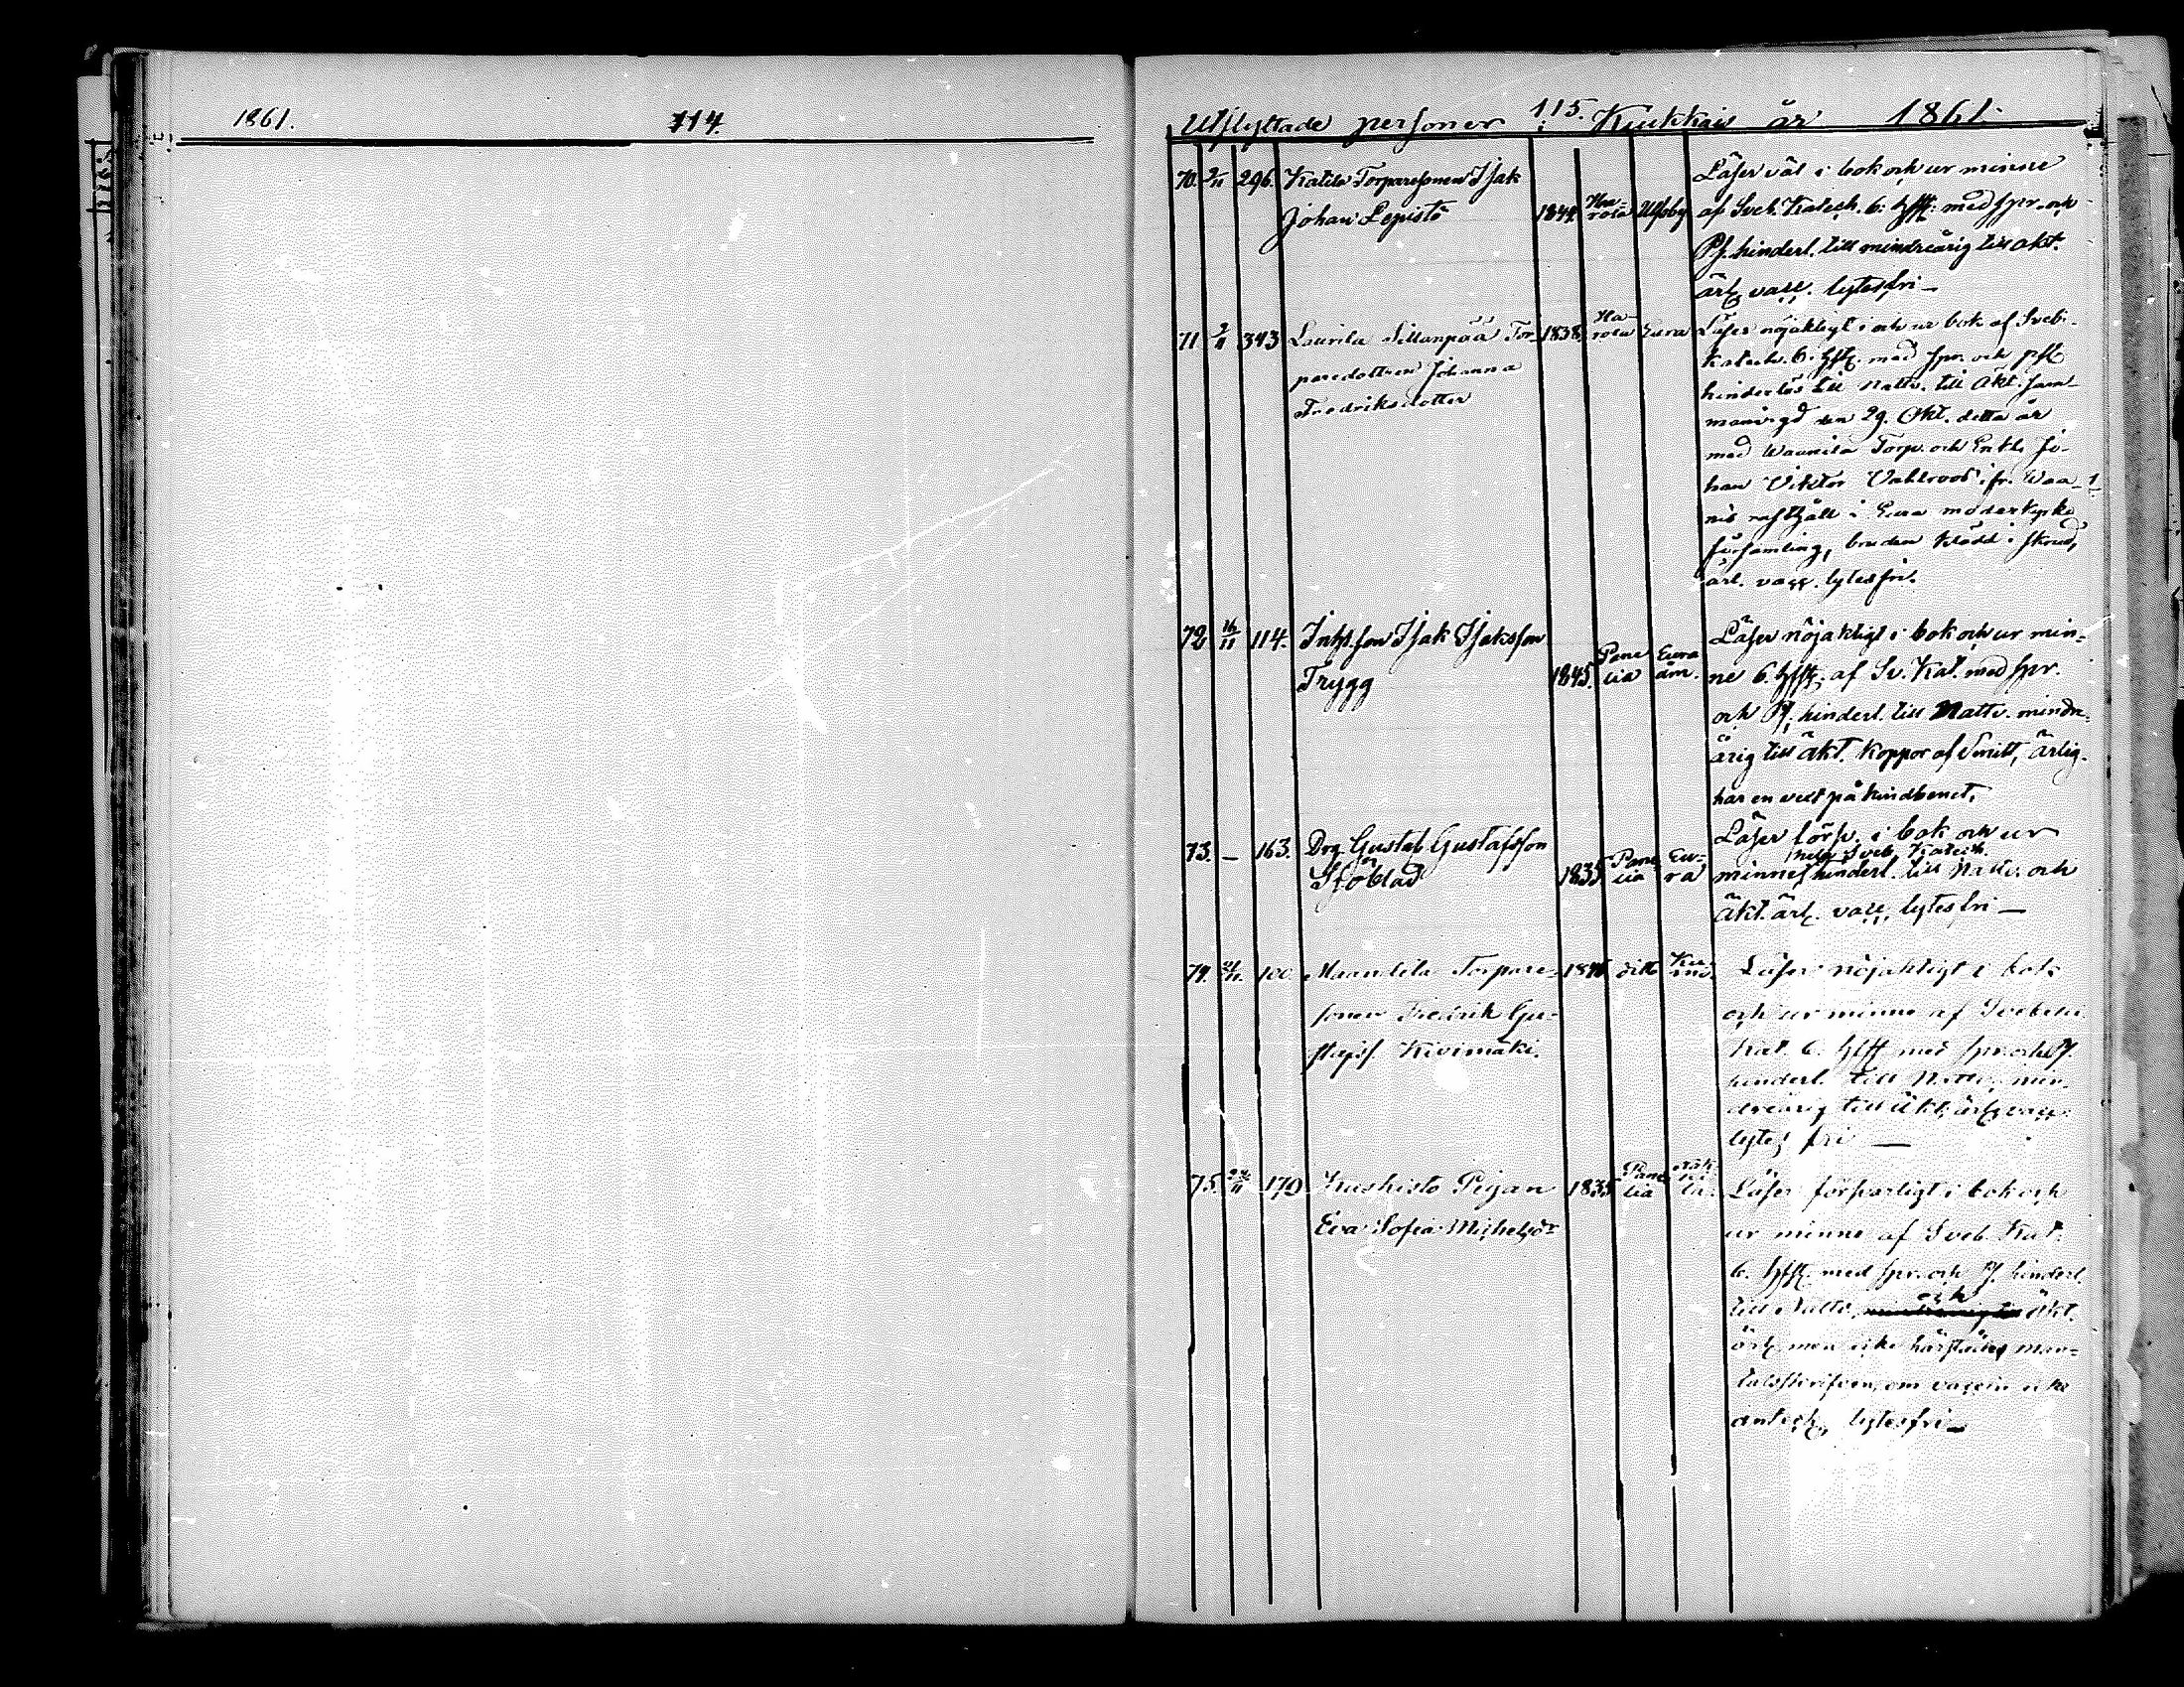 1861.
114.
115.
Utflyttade personer Kiukkais år 1861.
70. 2/11 296. Katila Torparesonen Isak
Johan Lepistö 1844. Harola Ulfsby
Läser väl i bok och ur minne
af Sveb. Katech. 6. hfft: med spr. och
Pf. hinderl. till mindreårig till äkt.
ärl. vacc. lytesfri —
71 2/11 343 Laurila Sillanpää Tor-
paredottren Johanna
Fredriksdotter 1838. Harola Eura
Läser nöjaktigt i och ur bok af Sveb.
Katech. 6. hfft. med spr. och psl
hinderlös till Nattv. till Äkt. sam-
manvigd den 29. Okt. detta år
med Waanila Torp. och Enkl. Jo-
han Viktor i fr. Waa-
nis i Eura moderkyrko
församling, bruden klädd i skrud,
ärl. vacc. lytesfri.
72 16/11 114. Inhs. son Isak Isaksson
Trygg 1845. Panelia Eura åm.
Läser nöjaktigt i bok och ur min-
ne 6. hfft. af Sv. Kat. med spr.
och Pf. hinderl. till Nattv. mindre-
årig till äkt. koppor af Smitt, ärlig.
har en vell på kindbenet,
73. — 163. Drg Gustaf Gustafsson
Sjöblad 1835. Panelia Eura
Läser förs. i bok och ur
hela Sveb. Katech.
minnet, hinderl. till Nattv. och
äkt. ärl. vacc. lytesfri —
74. 100. Maantila Torpare-
sonen Fredrik Gu-
stafss. Kivimäki. ditt
Läser nöjaktigt i bok
och ur minne af Svebelii
Kat. 6. hfft med spr. och Pf.
hinderl. till Nattv. min-
dreårig till äkt. ärl. vacc.
lytes fri —
75. 170 Kaskisto Pigan
Eva Sofia Michelsdr 1835 Panelia
Läser försvarligt i bok och
ur minne af Sveb. Kat.
6. hfft. med spr. och Pf. hinderl.
till Nattv. och äkt.
ärl. men icke härstädes man-
talsskrifven, om vaccin icke
anteck. lytesfri —